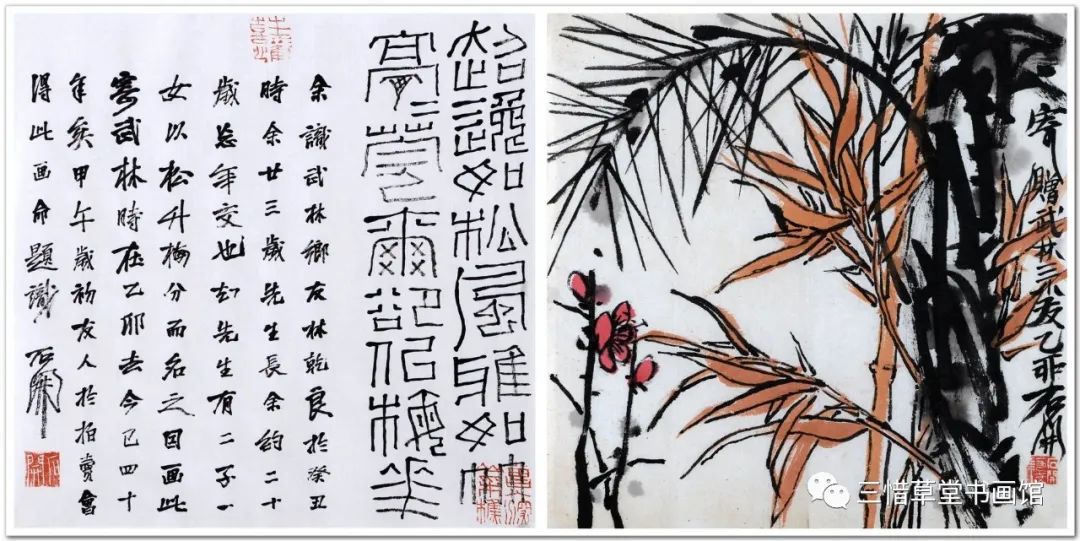 超逸如松風雅如竹
余識武林鄉友林乾良於癸丑
時余廿三歲先生長余約二十
歲忘年交也知先生有二子一
女以松竹梅分而名之因画此
寄武林時在乙卯去今已四十
年矣甲午歲初友人於拍賣會
得此画命題識 石開
石開
寄贈武林三友乙卯石開
三惜草堂书画馆